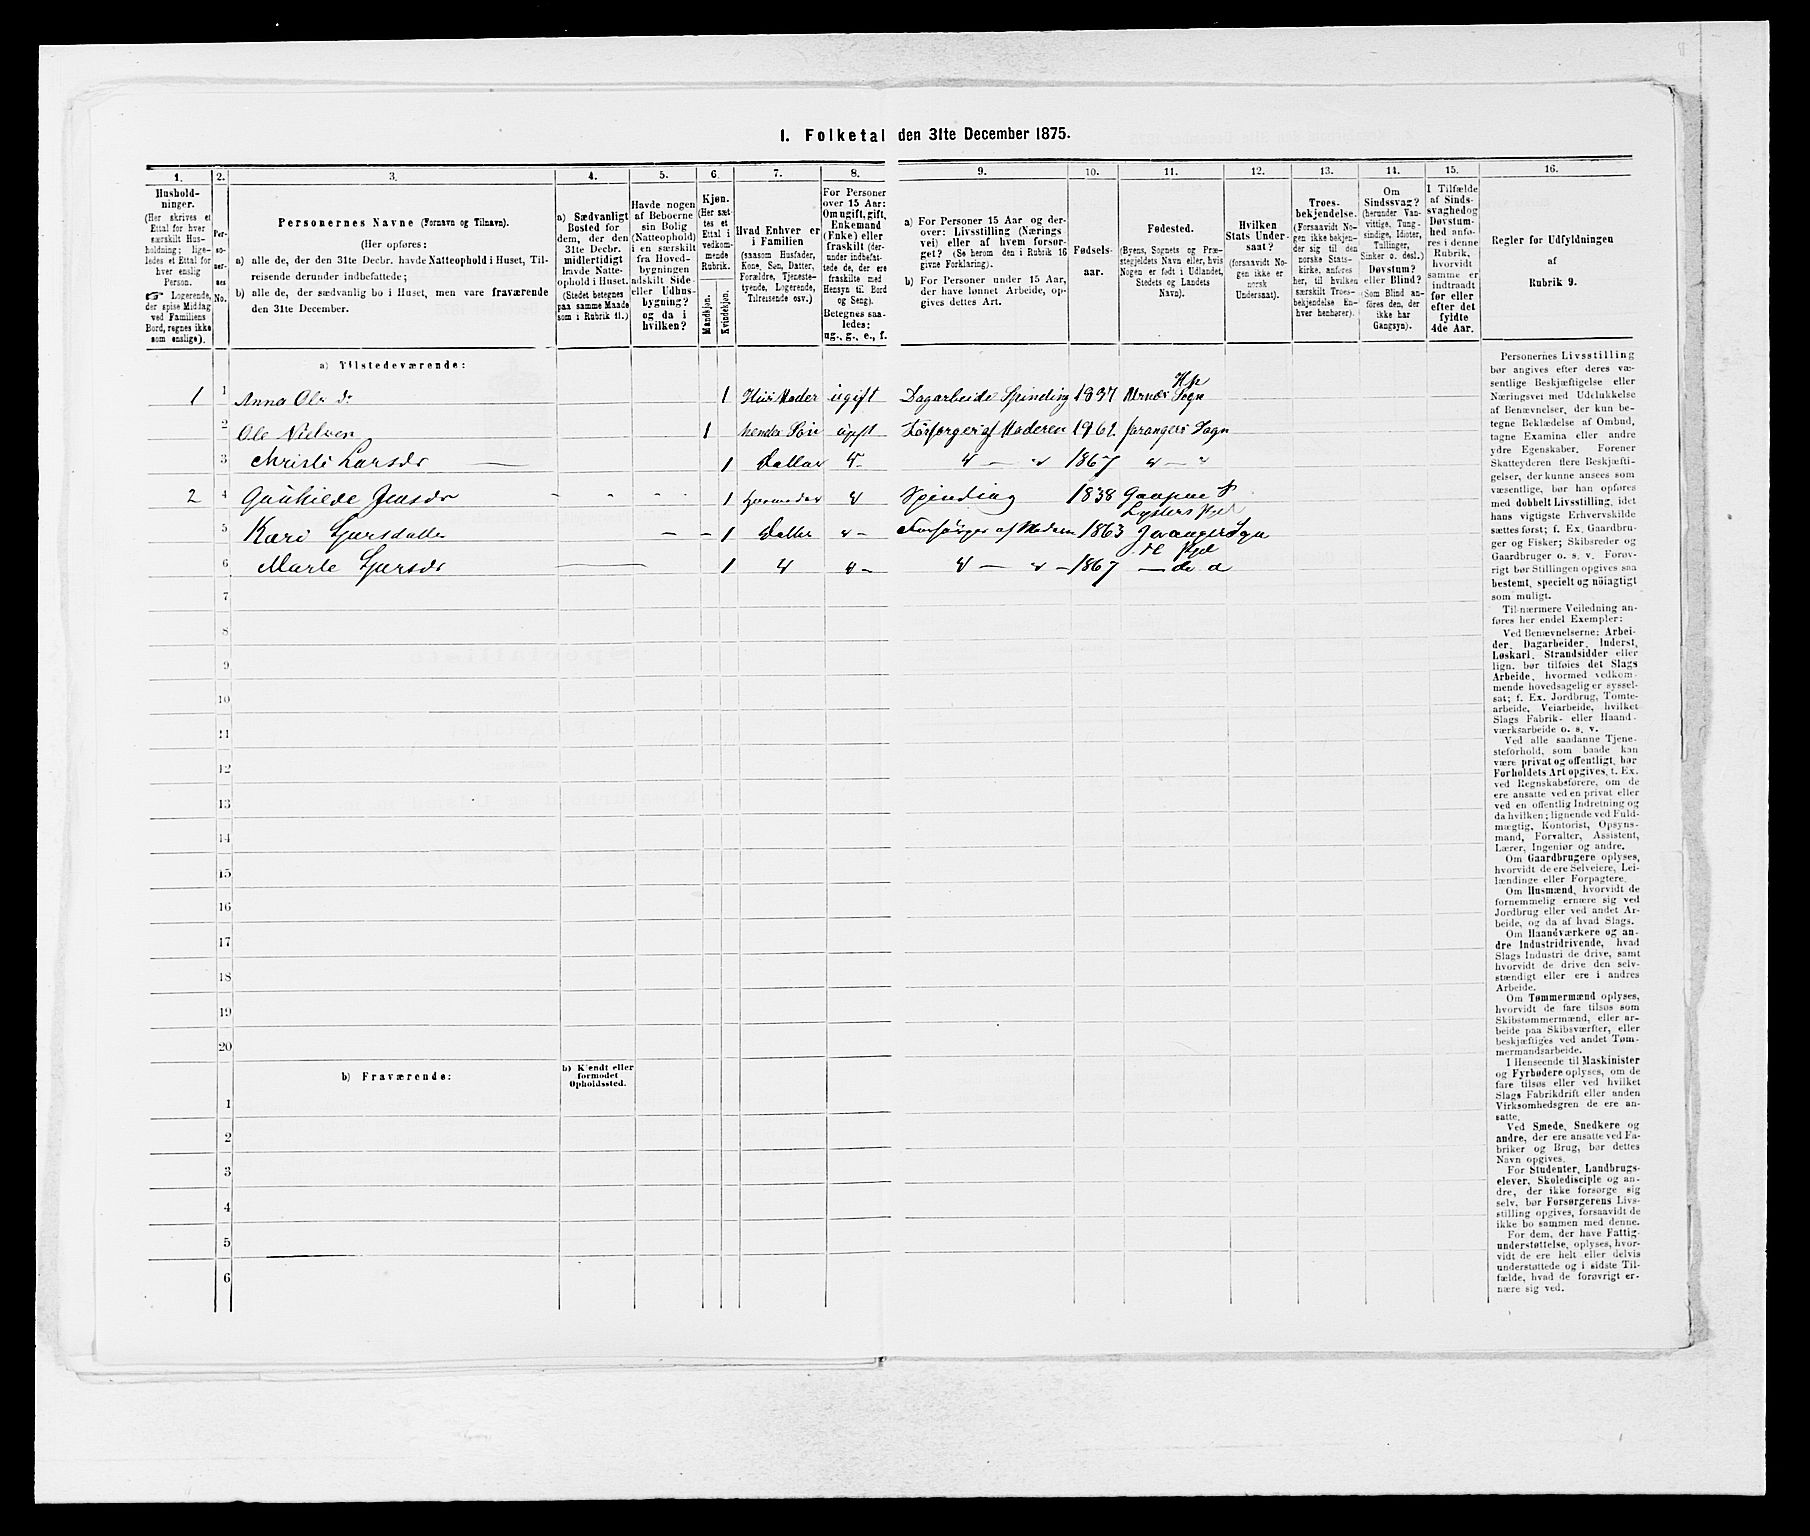 1. Folketal den 31te December 1875.
1. 2. 3. 4. 5. 6. 7. 8. 9. 10. 11. 12. 13. 14. 15. 16.
Hushold-
ninger.
(Her skrives et
Ettal for hver
særskilt Hus-
holdning; lige-
ledes et Ettal for
hver enslig
Person.
☞ Logerende,
der spise Middag
ved Familiens
Bord, regnes ikke
som enslige).
Per-
so-
ner-
nes
No.
Personernes Navne (Fornavn og Tilnavn).
(Her opføres:
a) alle de, der den 31te Decbr. havde Natteophold i Huset, Til-
reisende derunder indbefattede;
b) alle de, der sædvanlig bo i Huset, men vare fraværende
den 31te December.
a) Sædvanligt
Bosted for
dem, der den
31te Decbr.
midlertidigt
havde Natte-
ophold i Huset.
(Stedet betegnes
paa samme Maade
som i Rubrik 11.)
Havde nogen
af Beboerne
sin Bolig
(Natteophold)
i en særskilt
fra Hoved-
bygningen
adskilt Side-
eller Udhus-
bygning?
og da i
hvilken?
Kjøn.
(Her sæt-
tes et
Ettal i
vedkom-
mende
Rubrik.
Mandkjøn.
Kvindekjøn.
Hvad Enhver er
i Familien
(saasom Husfader,
Kone, Søn, Datter,
Forældre, Tjeneste-
tyende, Logerende,
Tilreisende osv.)
For Personer
over 15 Aar:
Om ugift, gift,
Enkemand
(Enke) eller
fraskilt (der-
under indbefat-
tede de, der ere
fraskilte med
Hensyn til Bord
og Seng).
Betegnes saa-
ledes:
ug., g., e., f.
a) For Personer 15 Aar og der-
over: Livsstilling (Nærings
vei) eller af hvem forsør-
get? (Se herom den i Rubrik 16
givne Forklaring).
b) For Personer under 15 Aar,
der have lønnet Arbeide, op-
gives dettes Art.
Fødsels-
aar.
Fødested.
(Byens, Sognets og Præ-
stegjeldets Navn eller, hvis
Nogen er født i Udlandet,
Stedets og Landets
Navn).
Hvilken
Stats Under-
saat?
(forsaavidt No-
gen ikke er
norsk
Undersaat).
Troes-
bekjendelse.
(Forsaavidt No-
gen ikke bekjen-
der sig til den
norske Stats-
kirke, anføres
her, til hvilken
særskilt Troes-
bekjendelse En-
hver henhører).
Om
Sindssvag?
(herunder Van-
vittige, Tung-
sindige, Idioter,
Tullinger,
Sinker o. desl.)
Døvstum?
eller Blind?
(Som Blind an-
føres den, der
ikke har
Gangsyn).
I Tilfælde
af Sinds-
svaghed og
Døvstum-
hed anfø-
res i denne
Rubrik,
hvorvidt
samme er
indtraadt
før eller
efter det
fyldte
4de Aar.
Regler før Udfyldningen
af
Rubrik 9.
a) Tilstedeværende:
1 1 Anna Ols d. 1 Hus Moder ugift Dagarbeide Spinding 1837 Urnæs Sogn Hp
2 Ole Nielsen 1 hendes Søn ugift forsørges af Moderen 1861 Jarangers Sogn
3 Christi Larsdr 1 Datter 1867
2 4 Gunhilde Jensdr 1 Spinding 1838 Gaupne S
Lysters Pgjel
5 Kari Larsdatter 1 Datter Forsørges af Modern 1863 Sogn
6 Marte 1 1867 do d
7
8
9
10
11
12
13
14
15
16
17
18
19
20
b) Fraværende:
b) Kjendt eller
formodet
Opholdssted.
1
2
3
4
5
6
Personernes Livsstilling
bør angives efter deres væ-
sentlige Beskjæftigelse eller
Næringsvei med Udelukkelse
af Benævnelser, der kun be-
tegne Beklædelse af Ombud,
tagne Examina eller andre
ydre Egenskaber. Forener
Skatteyderen flere Beskjæfti-
gelser, der kunne ansees som
væsentlige, bør han opføres
med dobbelt Livsstilling, idet
hans vigtigste Erhvervskilde
sættes først; f. Ex. Gaardbru-
ger og Fisker; Skibsreder og
Gaardbruger o. s. v. Forøv-
rigt bør Stillingen opgives saa
bestemt, specielt og nöiagtigt
som muligt.
Til nærmere Veiledning an-
føres her endel Exempler:
Ved Benævnelserne: Arbei-
der, Dagarbeider, Inderst,
Løskarl, Strandsidder eller
lign. bør tilføies det Slags
Arbeide, hvormed vedkom-
mende hovedsagelig er syssel-
sat; f. Ex. Jordbrug, Tomte-
arbeide, Veiarbeide, hvilket
Slags Fabrik- eller Haand-
værksarbeide o. s. v.
Ved alle saadanne Tjene-
steforhold, som baade kan
være privat og offentligt, bør
Forholdets Art opgives, t. Ex.
ved Regnskabsførere, om de
ere ansatte ved en privat eller
ved en offentlig Indretning og
da hvilken; lignende ved Fuld-
mægtig, Kontorist, Opsyns-
mand, Forvalter, Assistent,
Lærer, Ingeniør og andre.
Om Gaardbrugere oplyses,
hvorvidt de ere Selveiere, Lei-
lændinge eller Forpagtere.
Om Husmænd, hvorvidt de
fornemmelig ernære sig ved
Jordbrug eller ved andet Ar-
beide, og da af hvad Slags.
Om Haandværkere og an-
dre Industridrivende, hvad
Slags Industri de drive, samt
hvorvidt de drive den selv-
stændigt eller ere i andres
Arbeide.
Om Tømmermænd oplyses,
hvorvidt de fare tilsøs som
Skibstømmermænd, eller ar-
beide paa Skibsværfter, eller
beskjæftiges ved andet Tøm-
mermandsarbeide.
I Henseende til Maskinister
og Fyrbødere oplyses, om de
fare tilsøs eller ved hvilket
Slags Fabrikdrift eller anden
Virksomhedsgren de ere an-
satte.
Ved Smede, Snedkere og
andre, der ere ansatte ved Fa-
briker og Brug, bør dettes
Navn opgives.
For Studenter, Landbrugs-
elever, Skoledisciple og an-
dre, der ikke forsørge sig
selv, bør Forsørgerens Livs-
stilling opgives, forsaavidt de
ikke bo sammen med denne.
For dem, der have Fattig-
understøttelse, oplyses, hvor-
vidt de ere helt eller delvis
understøttede og i sidste Til-
fælde, hvad de forøvrigt er-
nære sig ved.